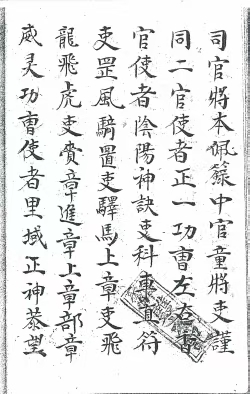 司官將本佩籙中官童將吏謹
同二官使者正一功曹左右官
官使者陰陽神訣吏科車真符
吏罡風騎置吏驛馬上章吏飛
龍飛虎吏賫章進章上章部章
威灵功曹使者里域正神恭望